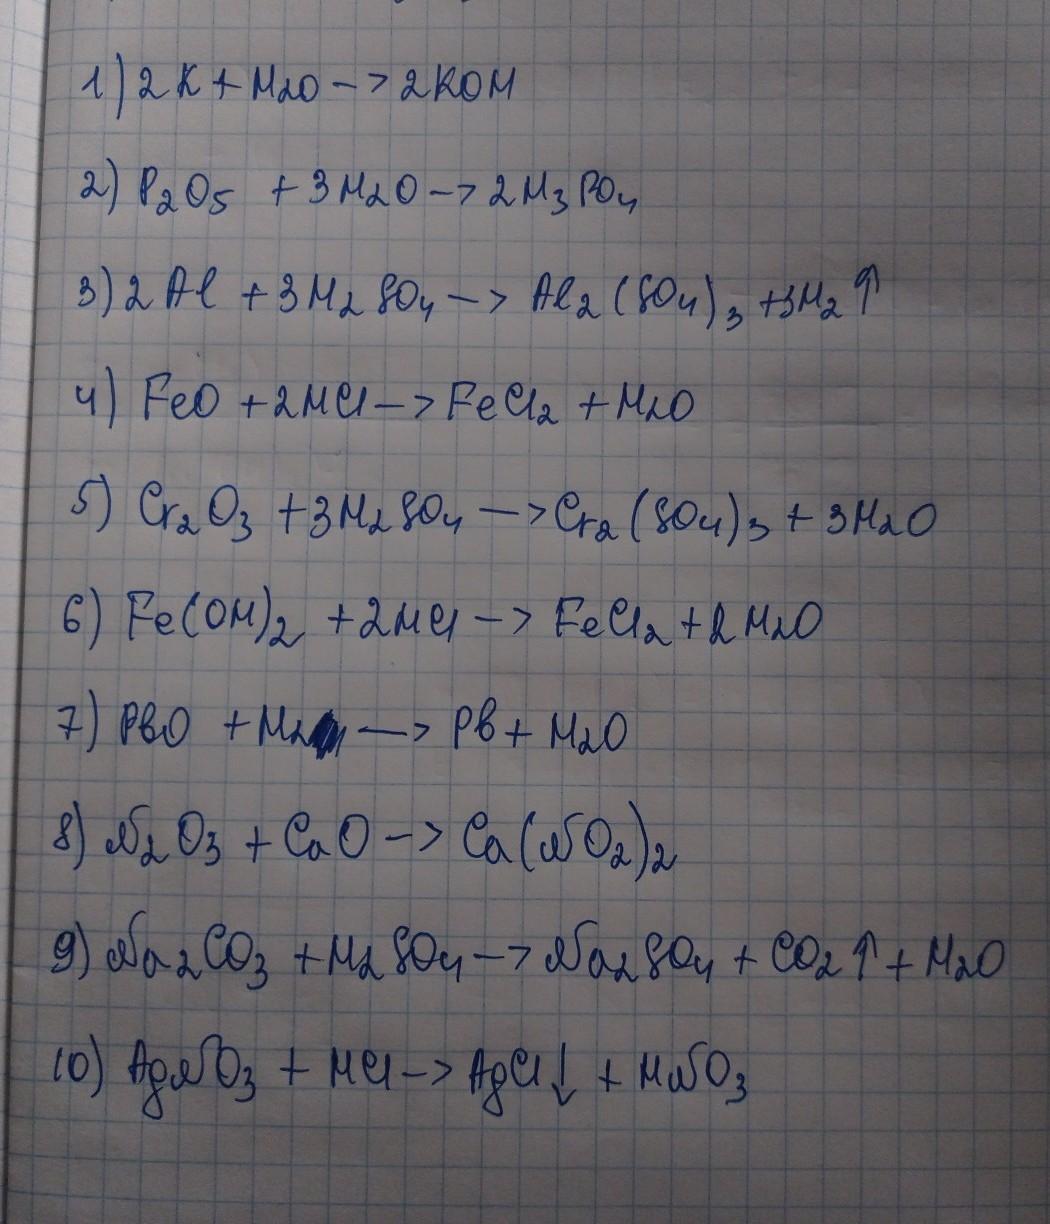 1) 2K + H2O -> 2KOH
2) P2O5 + 3H2O -> 2H3PO4
3) 2Al + 3H2SO4 -> Al2(SO4)3 + 3H2↑
4) FeO + 2HCl -> FeCl2 + H2O
5) Cr2O3 + 3H2SO4 -> Cr2(SO4)3 + 3H2O
6) Fe(OH)2 + 2HCl -> FeCl2 + 2H2O
7) PbO + H2 -> Pb + H2O
8) N2O3 + CaO -> Ca(NO2)2
9) Na2CO3 + H2SO4 -> Na2SO4 + CO2↑ + H2O
10) AgNO3 + HCl -> AgCl↓ + HNO3